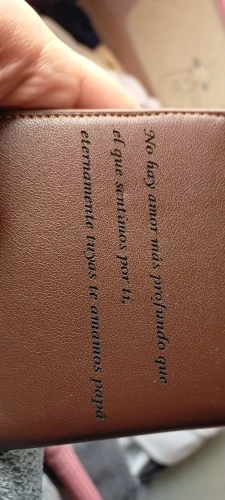 No hay amor más profundo que
el que sentimos por ti,
eternamente tuyos te amamos papá